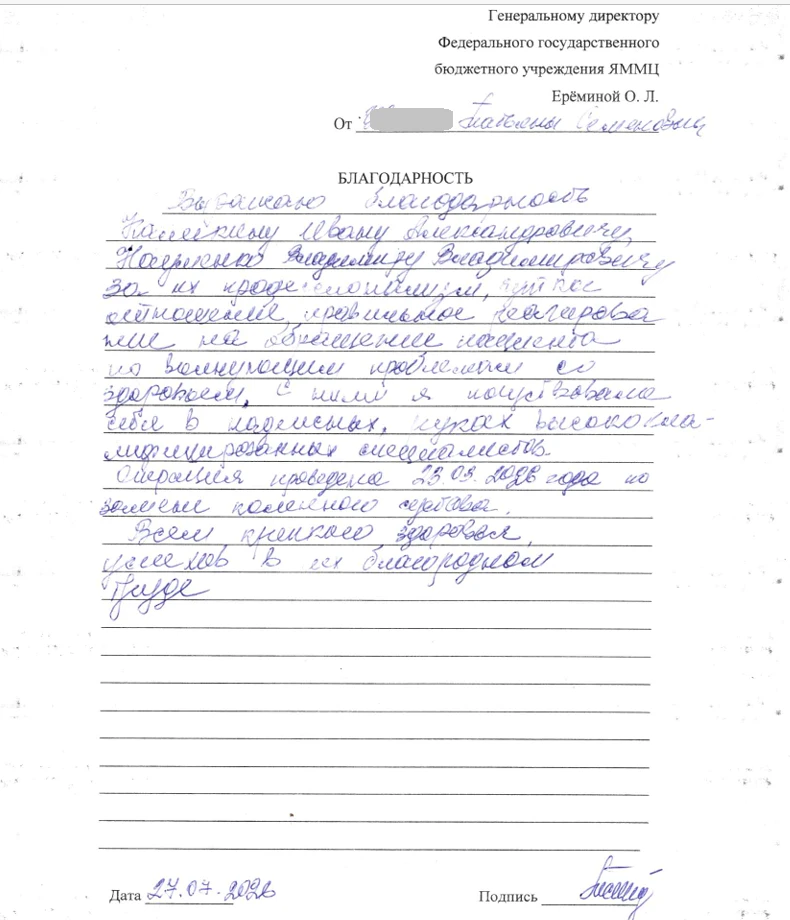 Генеральному директору
Федерального государственного
бюджетного учреждения ЯММЦ
Ерёминой О. Л.
От Татьяны Семеновны
БЛАГОДАРНОСТЬ
Выражаю благодарность
Ивану Александровичу,
Владимиру Владимировичу
за их профессионализм, чуткое
отношение, правильное реагирова
ние на обращение пациента
по волнующим проблемам со
здоровьем. С ними я почуствовала
себя в надежных руках высококва-
лифицированных специалистов.
Операция проведена 23.03.2026 года по
замене коленного сустава.
Всем крепкого здоровья,
успехов в их благородном
труде
Дата 27.07.2026
Подпись